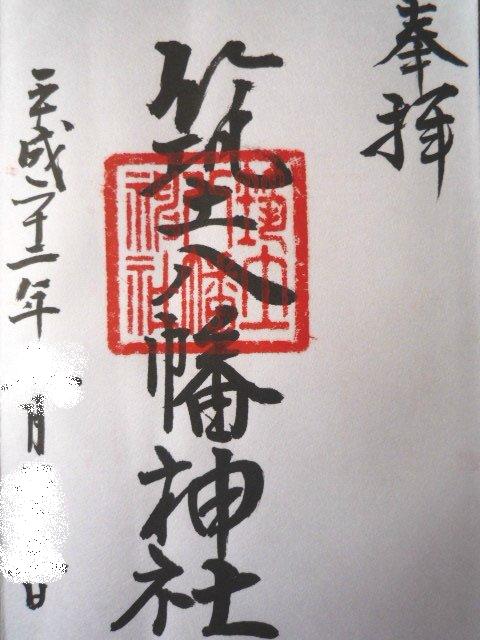 奉拝
筑土八幡神社
筑土八幡神社
平成二十二年
月
日